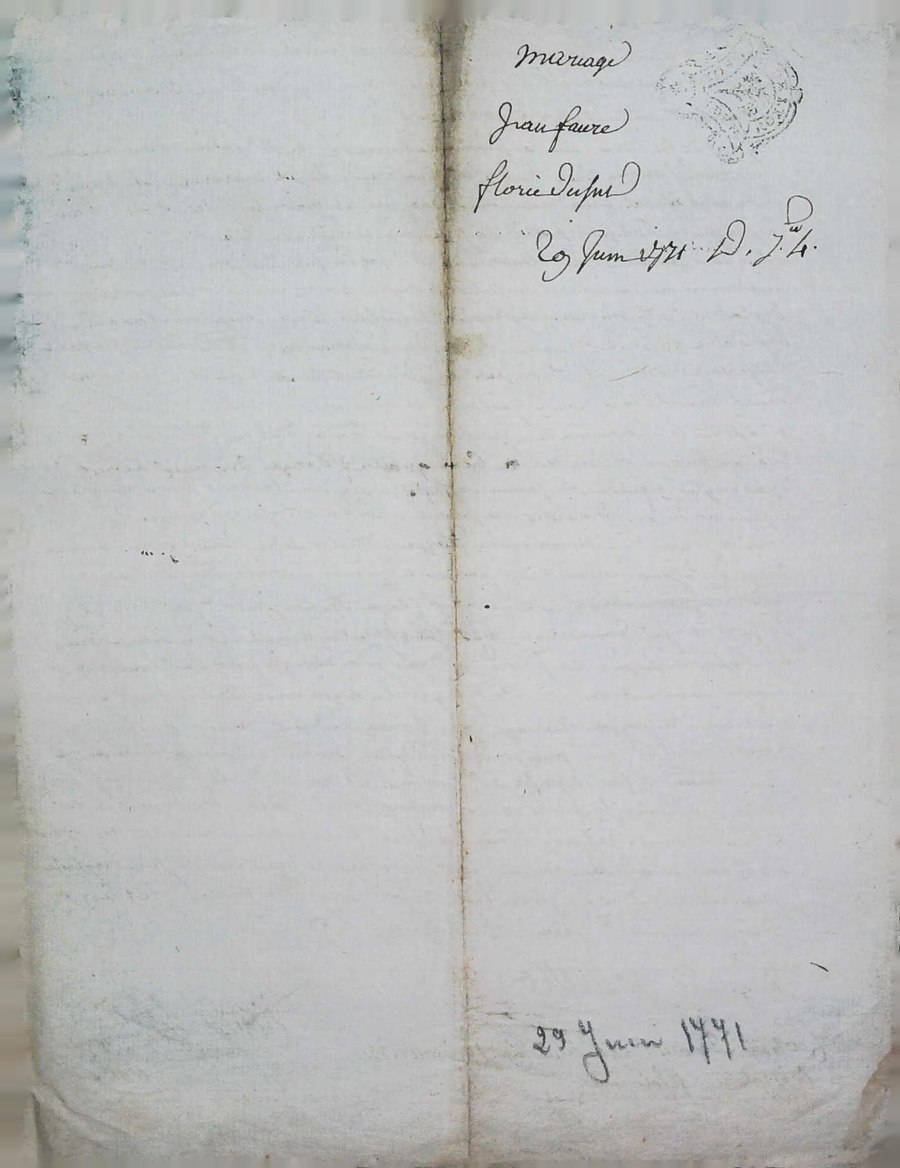 mariage
Jean faure
florie
29 Juin 1771
29 Juin 1771